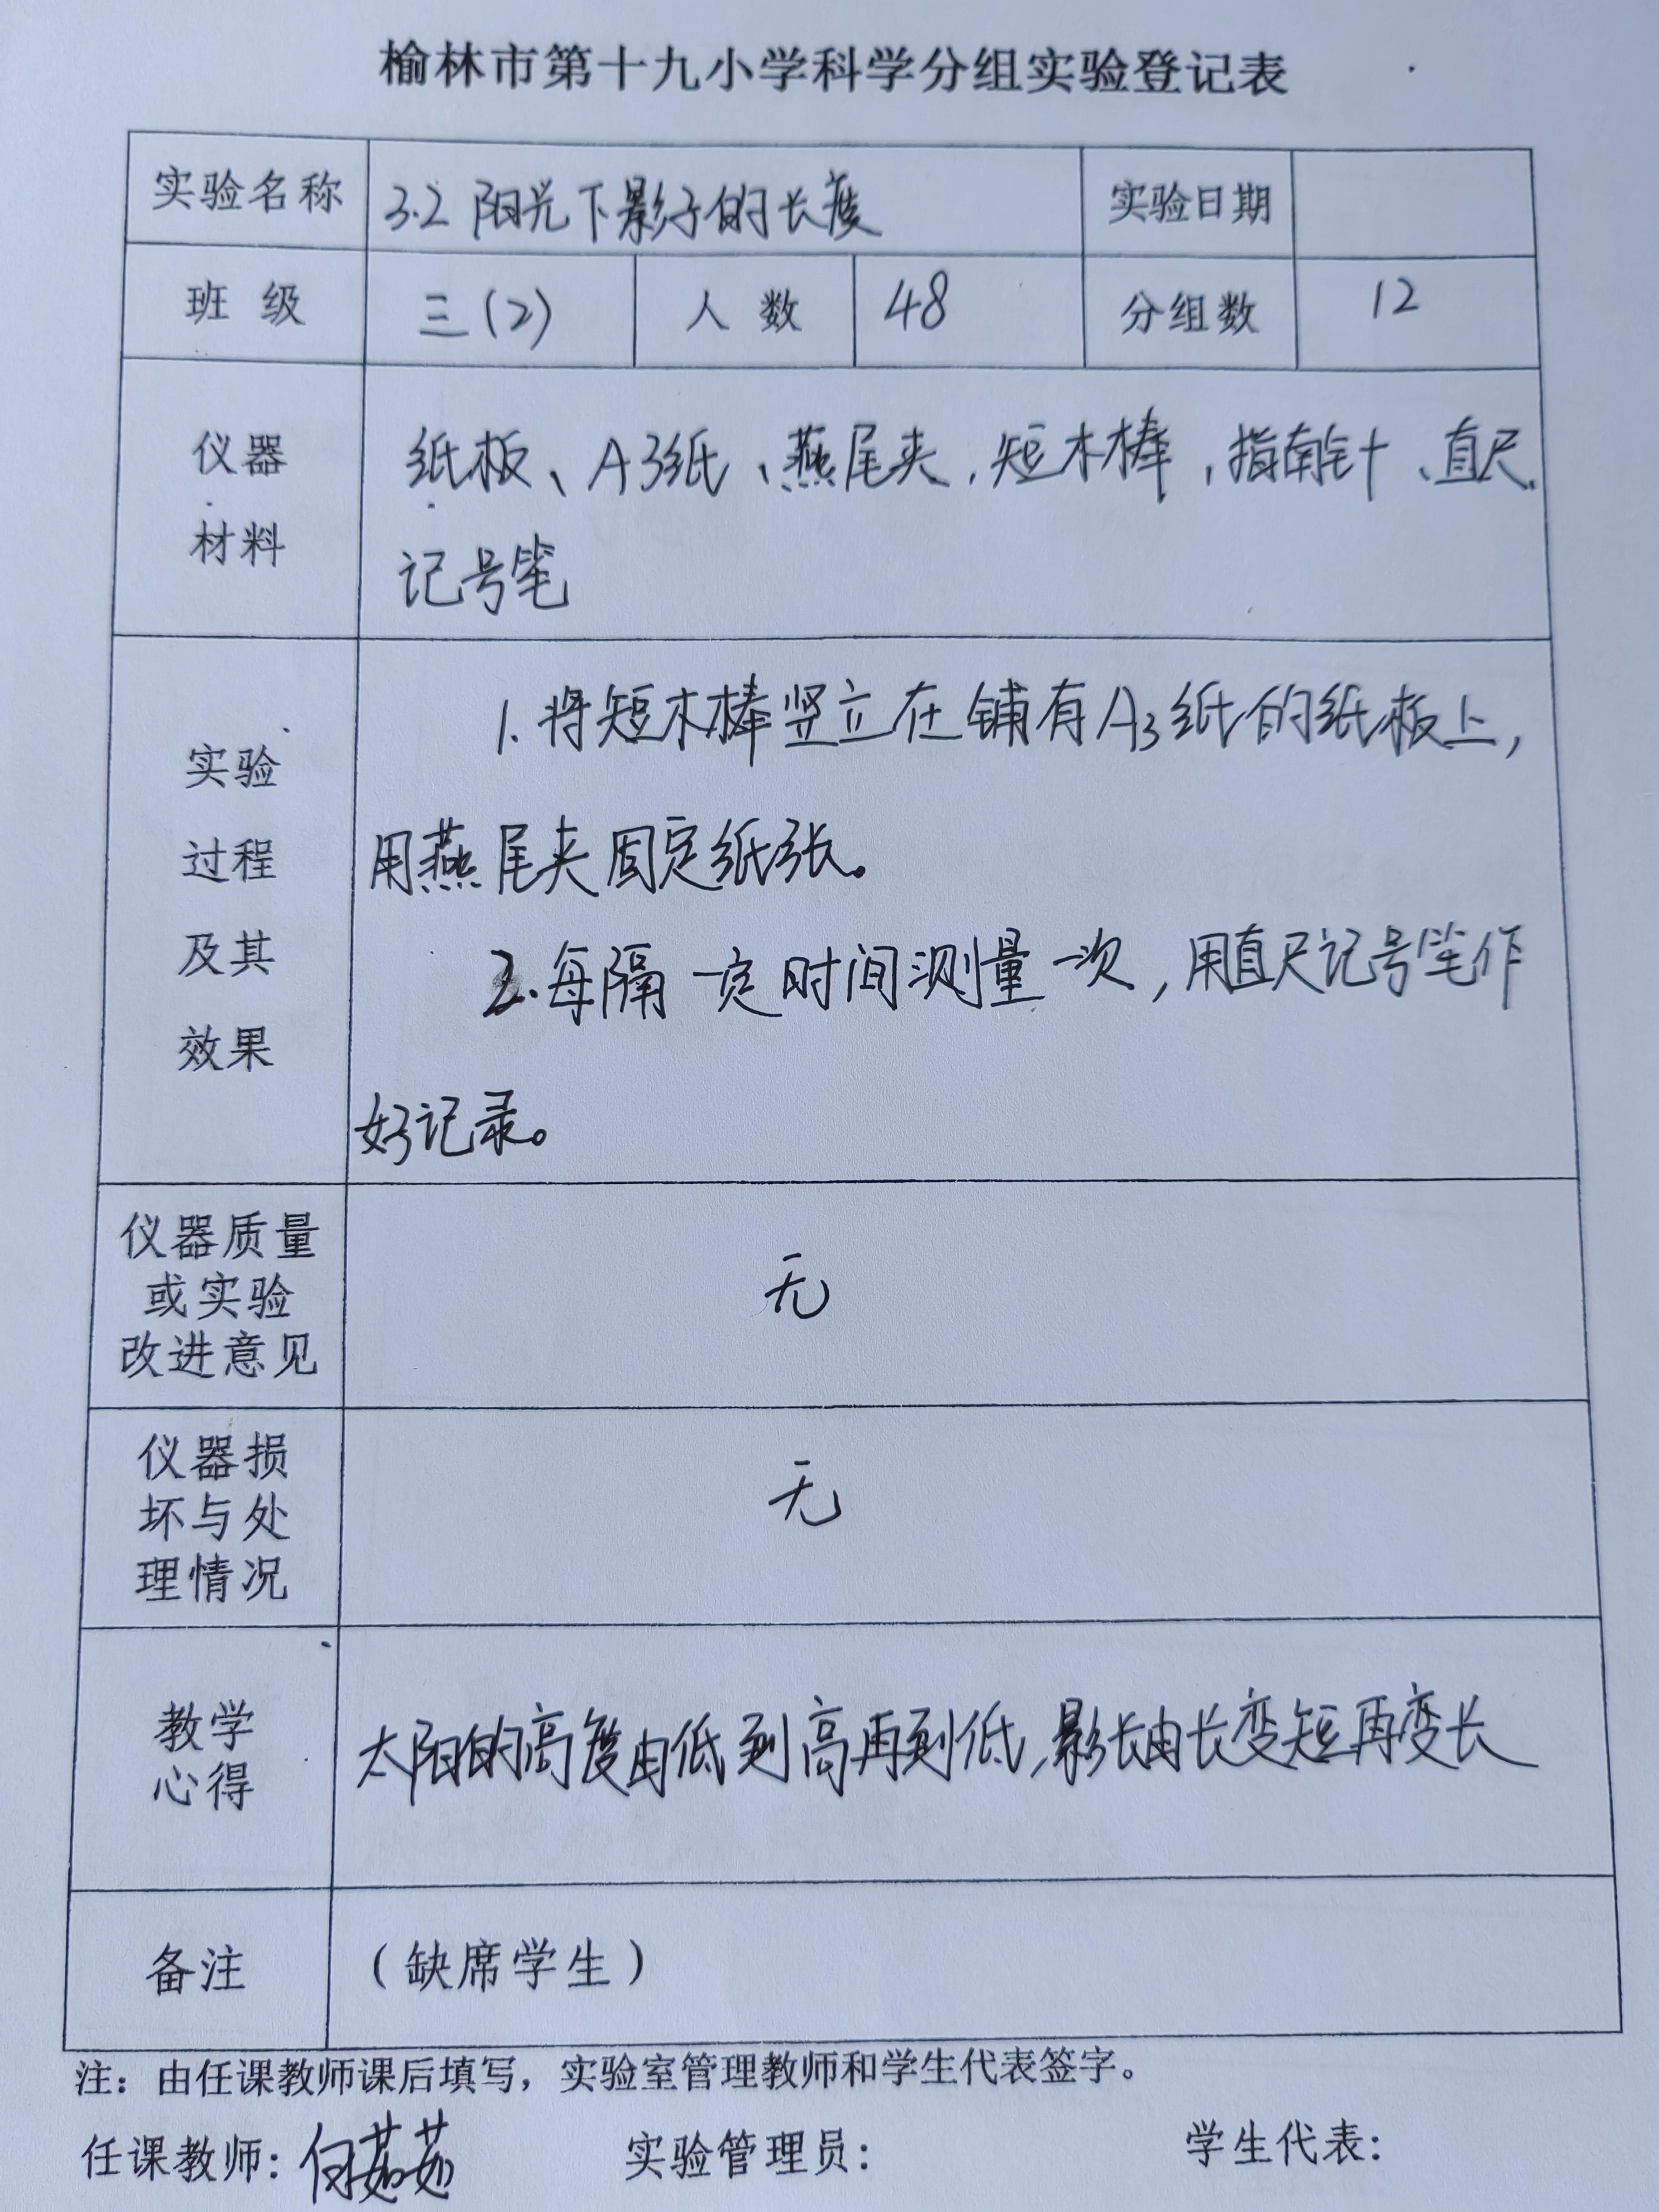 榆林市第十九小学科学分组实验登记表
实验名称 3.2 阳光下影子的长度 实验日期
班 级 三(2) 人 数 48 分组数 12
仪器
材料
纸板、A3纸、燕尾夹,短木棒,指南针、直尺、
记号笔
实验
过程
及其
效果
1.将短木棒竖立在铺有A3纸的纸板上,
用燕尾夹固定纸张。
2.每隔一定时间测量一次,用直尺记号笔作
好记录。
仪器质量
或实验
改进意见
无
仪器损
坏与处
理情况
无
教学
心得
太阳的高度由低到高再到低,影长由长变短再变长
备注 (缺席学生)
注:由任课教师课后填写,实验室管理教师和学生代表签字。
任课教师: 茹茹 实验管理员: 学生代表: